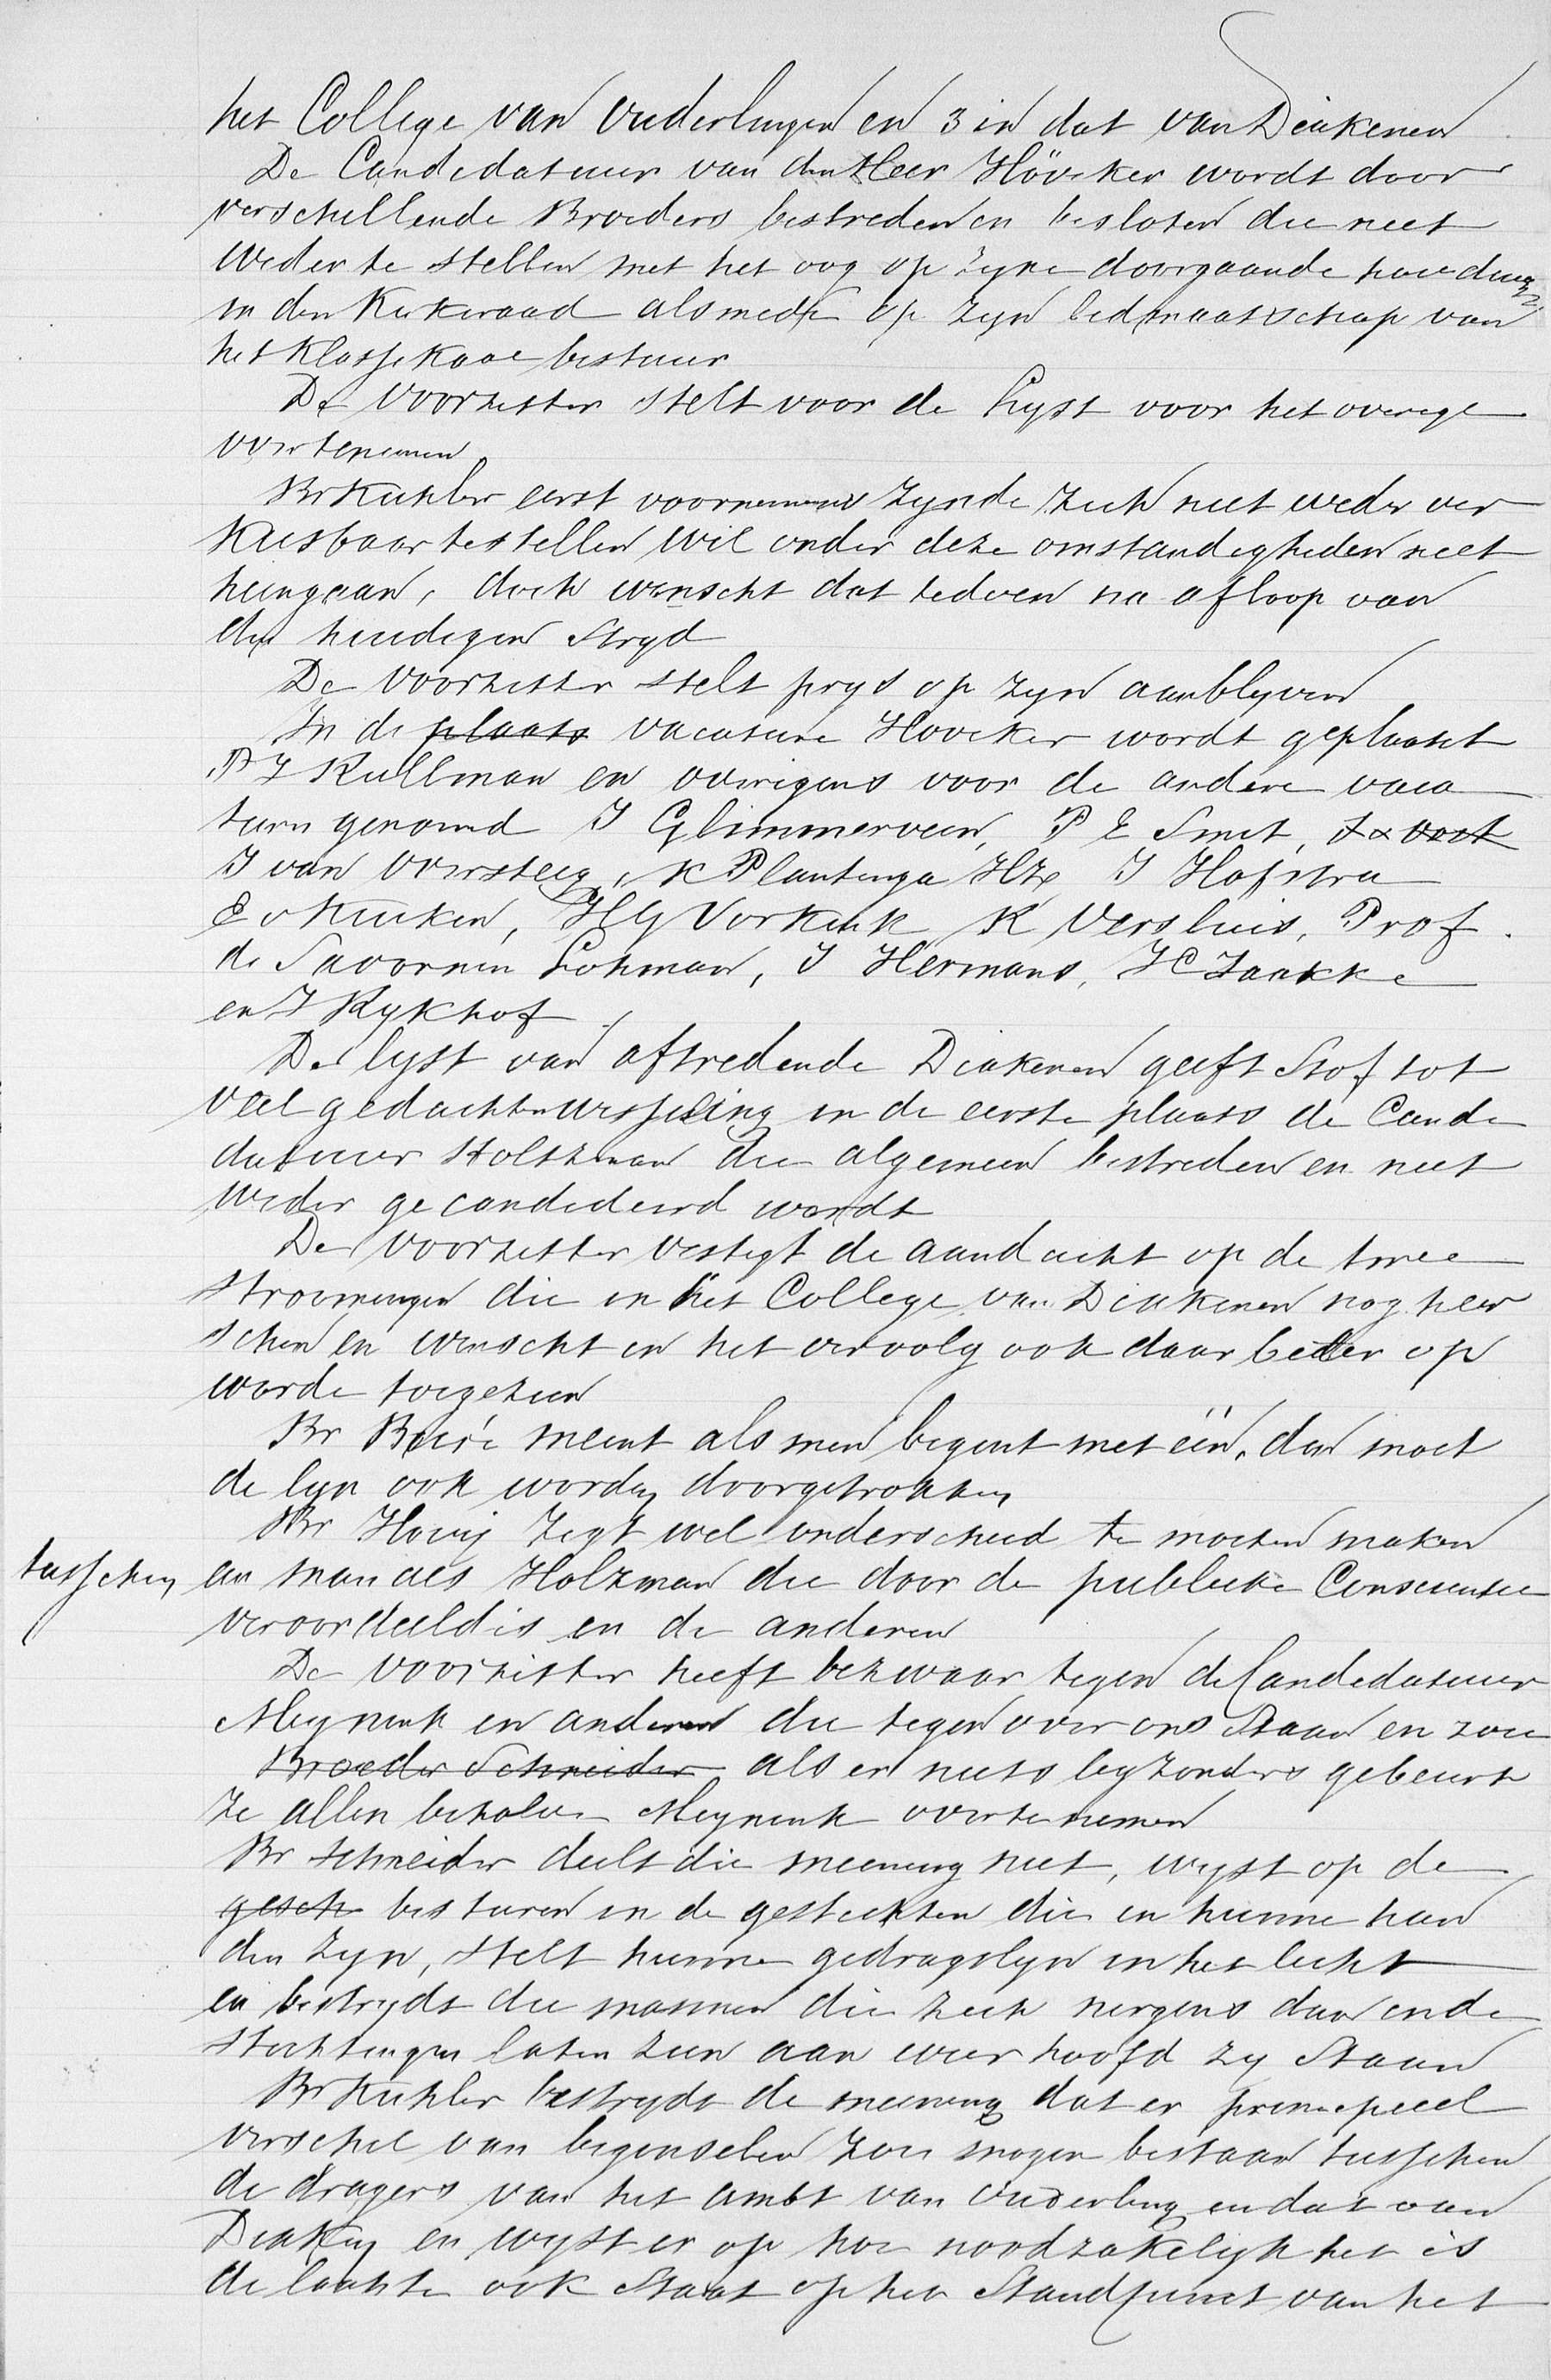 het College van Ouderlingen en 3 in dat van Diakenen
De Candidatuur van den Heer Höveker wordt door
verschillende Broeders bestreden en besloten die niet
weder te stellen met het oog op zyne doorgaande houding
in den Kerkeraad alsmede op zyn lidmaatschap van
het Klassikaal bestuur
De Voorzitter stelt voor de Lyst voor het overige
over te nemen
Br Kuhler eerst voornemens zynde zich niet weder ver
kiesbaar te stellen wil onder deze omstandigheden niet
heengaan, doch wenscht dat te doen na afloop van
den huidigen Stryd
De Voorzitter stelt prys op zyn aanblyven
In de plaats vacature Hoveker wordt geplaatst
P J Kullman en overigens voor de andere vaca
turen genoemd J Glimmerveen, P E Smit,
J van Oversteeg, K Plantinga HZn J Hofstra
E v Kuiken, HG Vorkink K Versluis, Prof.
de Savornin Lohman, J Hermans, JC Jaakke
en J Rykhof
De lyst van aftredende Diakenen geeft Stof tot
veel gedachtenwisseling in de eerste plaats de Candi
datuur Holtzman die algemeen bestreden en niet
weder gecandideerd wordt
De Voorzitter vestigt de aandacht op de twee
stroomingen die in het College van Diakenen nog heer
schen en wenscht in het vervolg ook daar beter op
worde toegezien
Br meent als men begint met één, dan moet
de lyn ook worden doorgetrokken
Br Hovij zegt wel onderscheid te moeten maken
tusschen an man als Holzman die door de publieke Consciensie
veroordeeld is en de anderen
De voorzitter heeft bezwaar tegen de Candidatuur
Meynink en anderen die tegenover ons Staan en zou
Broeder Schneider als er niets byzonders gebeurt
ze allen behalve Meynink overtenemen
Br Schneider deelt die meening niet, wyst op de
gesch besturen in de gestichten die in hunne han
den zyn, stelt hunne gedragslyn in het licht
en bestrydt die mannen die zich nergens dan in de
stichtingen laten zien aan wier hoofd zy Staan
Br Kuhler bestrydt de meening dat er principieel
verschil van beginselen zou mogen bestaan tusschen
de dragers van het ambt van Ouderling en dat van
Diaken en wyst er op hoe noodzakelijk het is
de laatste ook Staat op het Standpunt van het